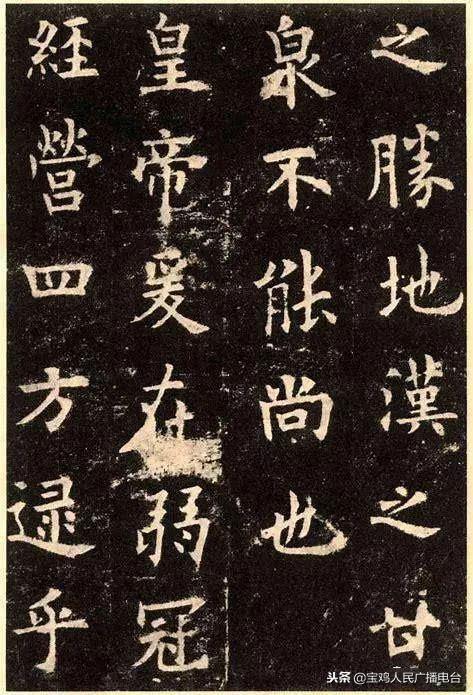 之勝地漢之甘
泉不能尚也
皇帝爰在弱冠
經營四方逯乎
头条@宝鸡人民广播电台